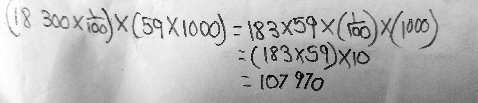 (18 300×1/100)×(59×1000) = 183×59×(1/100)×(1000)
= (183×59)×10
= 107 970